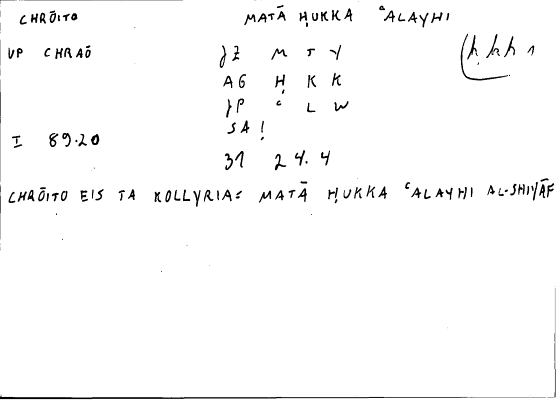 CHRŌITO MATĀ ḤUKKA ʿALAYHI
UP CHRAŌ JZ M T Y
AG Ḥ K K
JP ʿ L W
SA!
I 89.20
31 24.4
CHRŌITO EIS TA KOLLYRIA: MATĀ ḤUKKA ʿALAYHI AL-SHIYĀF